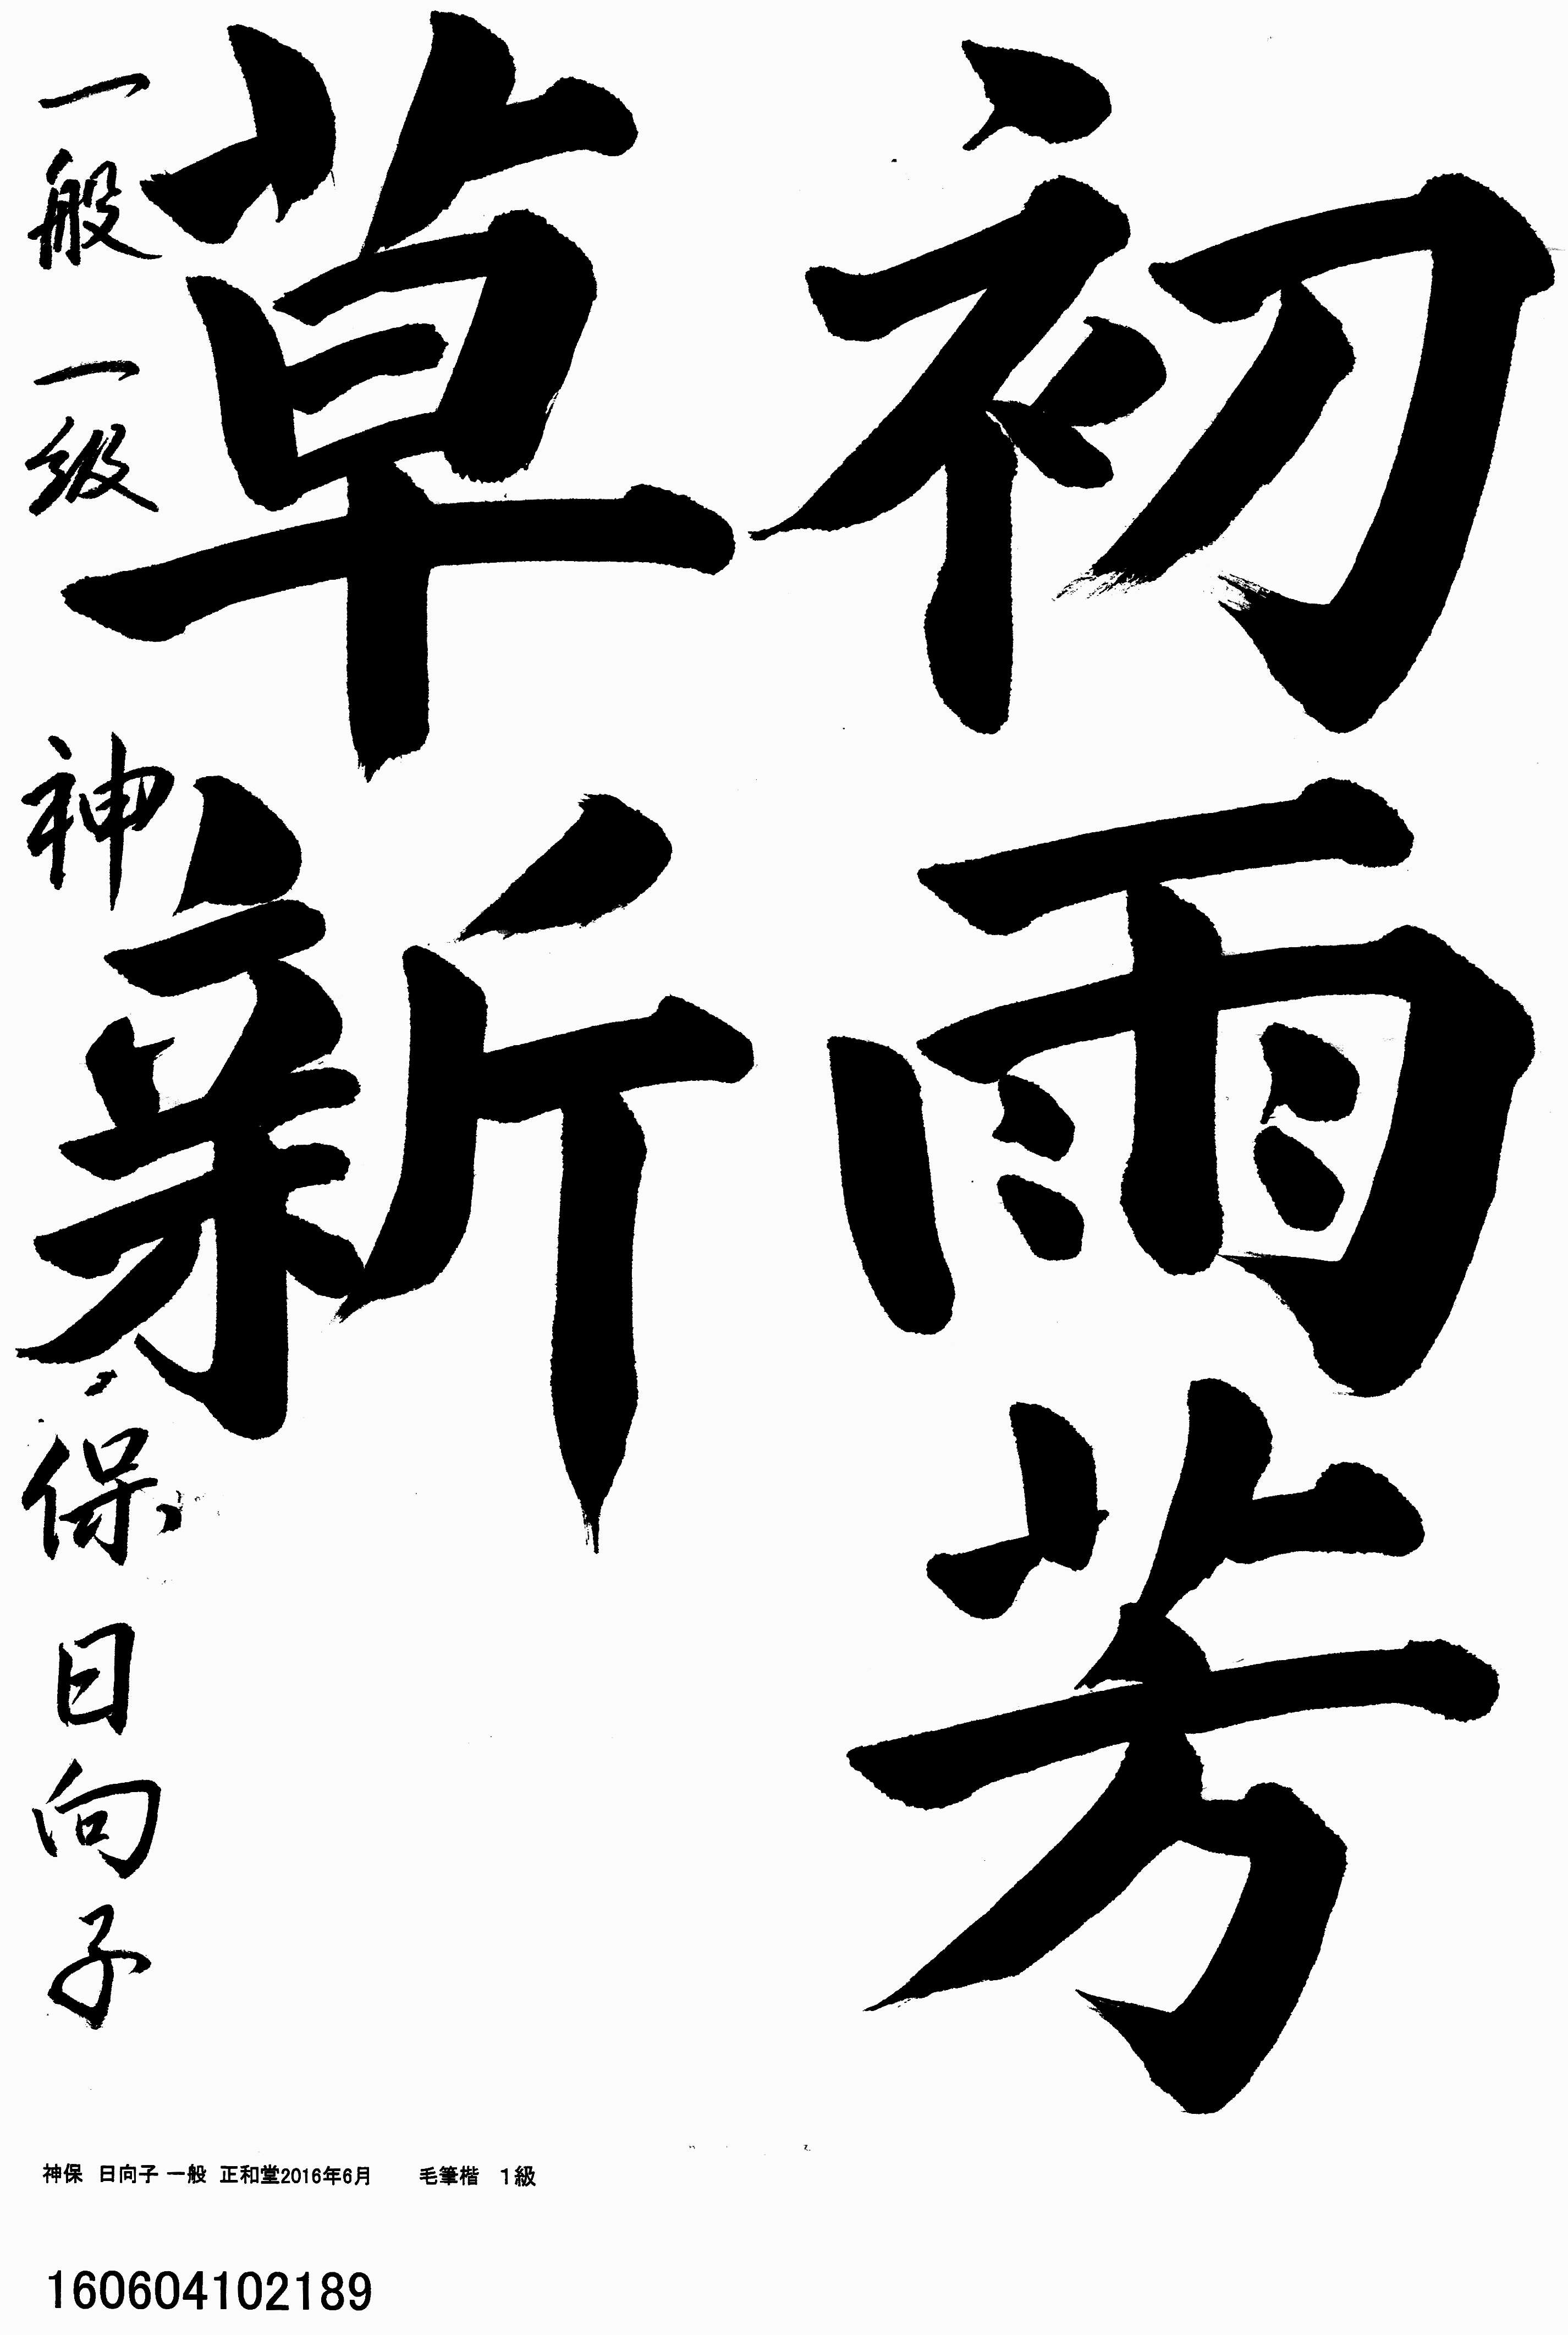 初雨芳
草新
一般 一級 神保日向子
神保 日向子 一般 正和堂2016年6月 毛筆楷 1級
160604102189